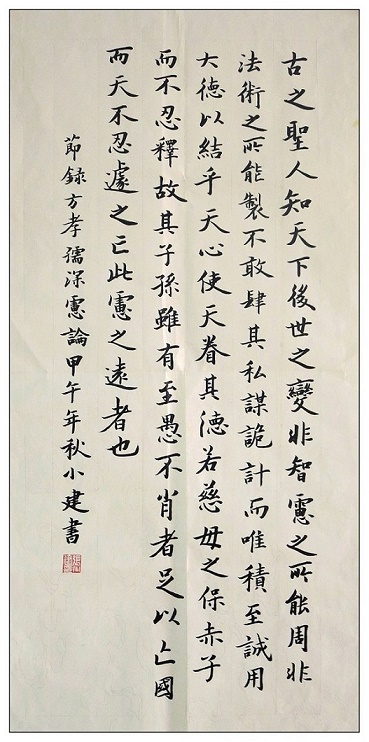 古之聖人知天下後世之變非智慮之所能周非
法術之所能製不敢肆其私謀詭計而唯積至誠用
大德以結乎天心使天眷其德若慈母之保赤子
而不忍釋故其子孫雖有至愚不肖者足以亡國
而天不忍遽之亡此慮之遠者也
節錄方孝孺深慮論甲午年秋小建書